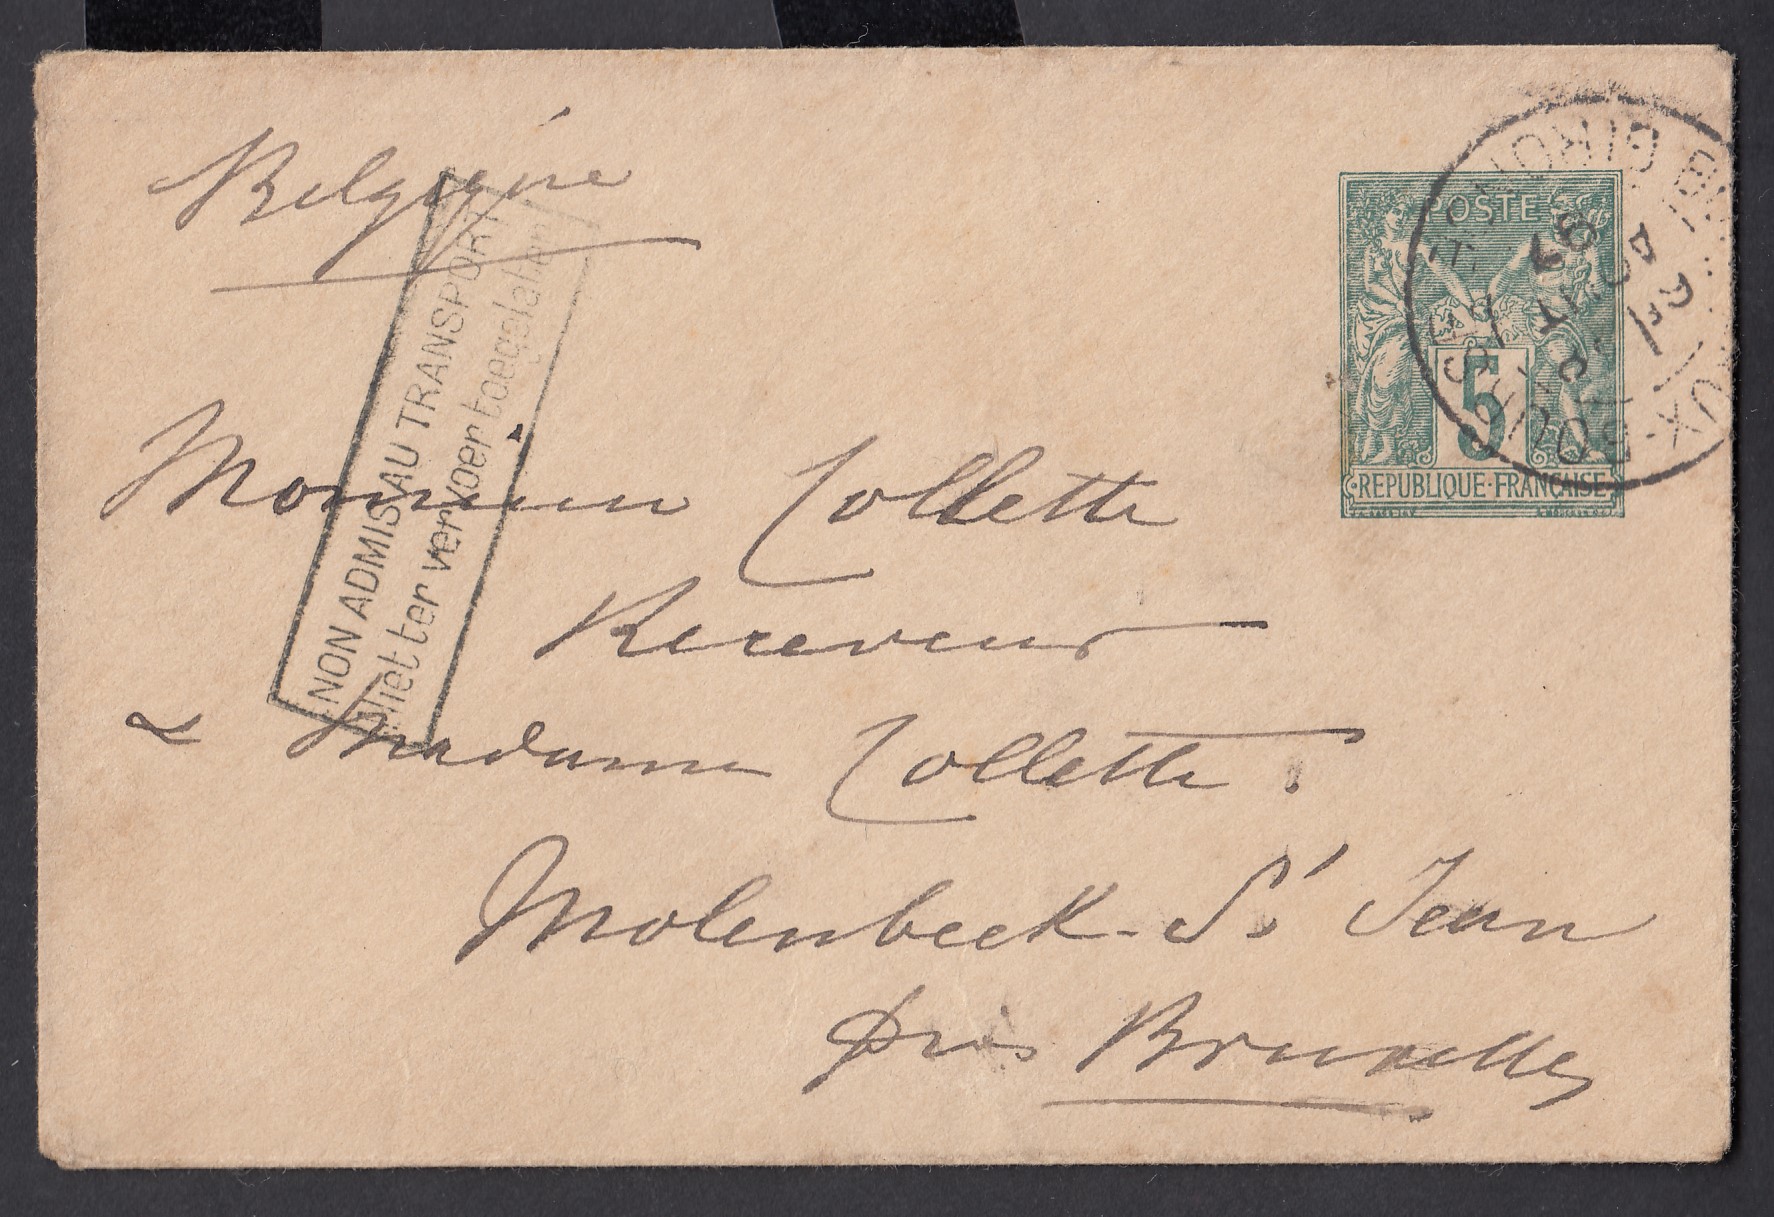 Belgique
NON ADMIS AU TRANSPORT
Niet ter vervoer toegelaten
POSTE
5
REPUBLIQUE·FRANÇAISE
Monsieur Collette
Receveur
& Madame Collette.
Molenbeek-St Jean
près Bruxelles